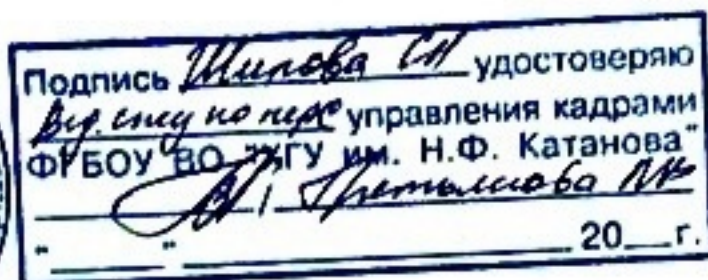 Подпись Шипова СП удостоверяю
Вед. спец по перс управления кадрами
ФГБОУ ВО "ХГУ им. Н.Ф. Катанова"
"___"___________ 20__г.